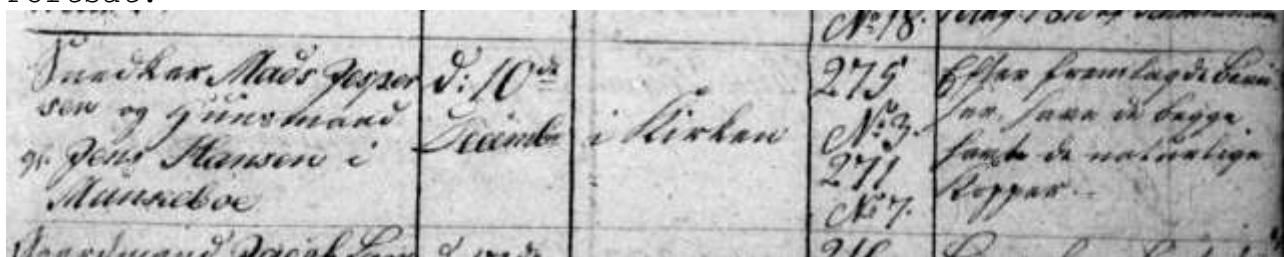 No 18.
Snedker Mads Jesper
sen og Huusmand
Jens Hansen i
Munkeboe
d: 10de
Decembr
i Kirken
275
No 3.
271
No 7.
Efter fremlagde Bevi
ser, have de begge
havte de naturlige
Kopper.